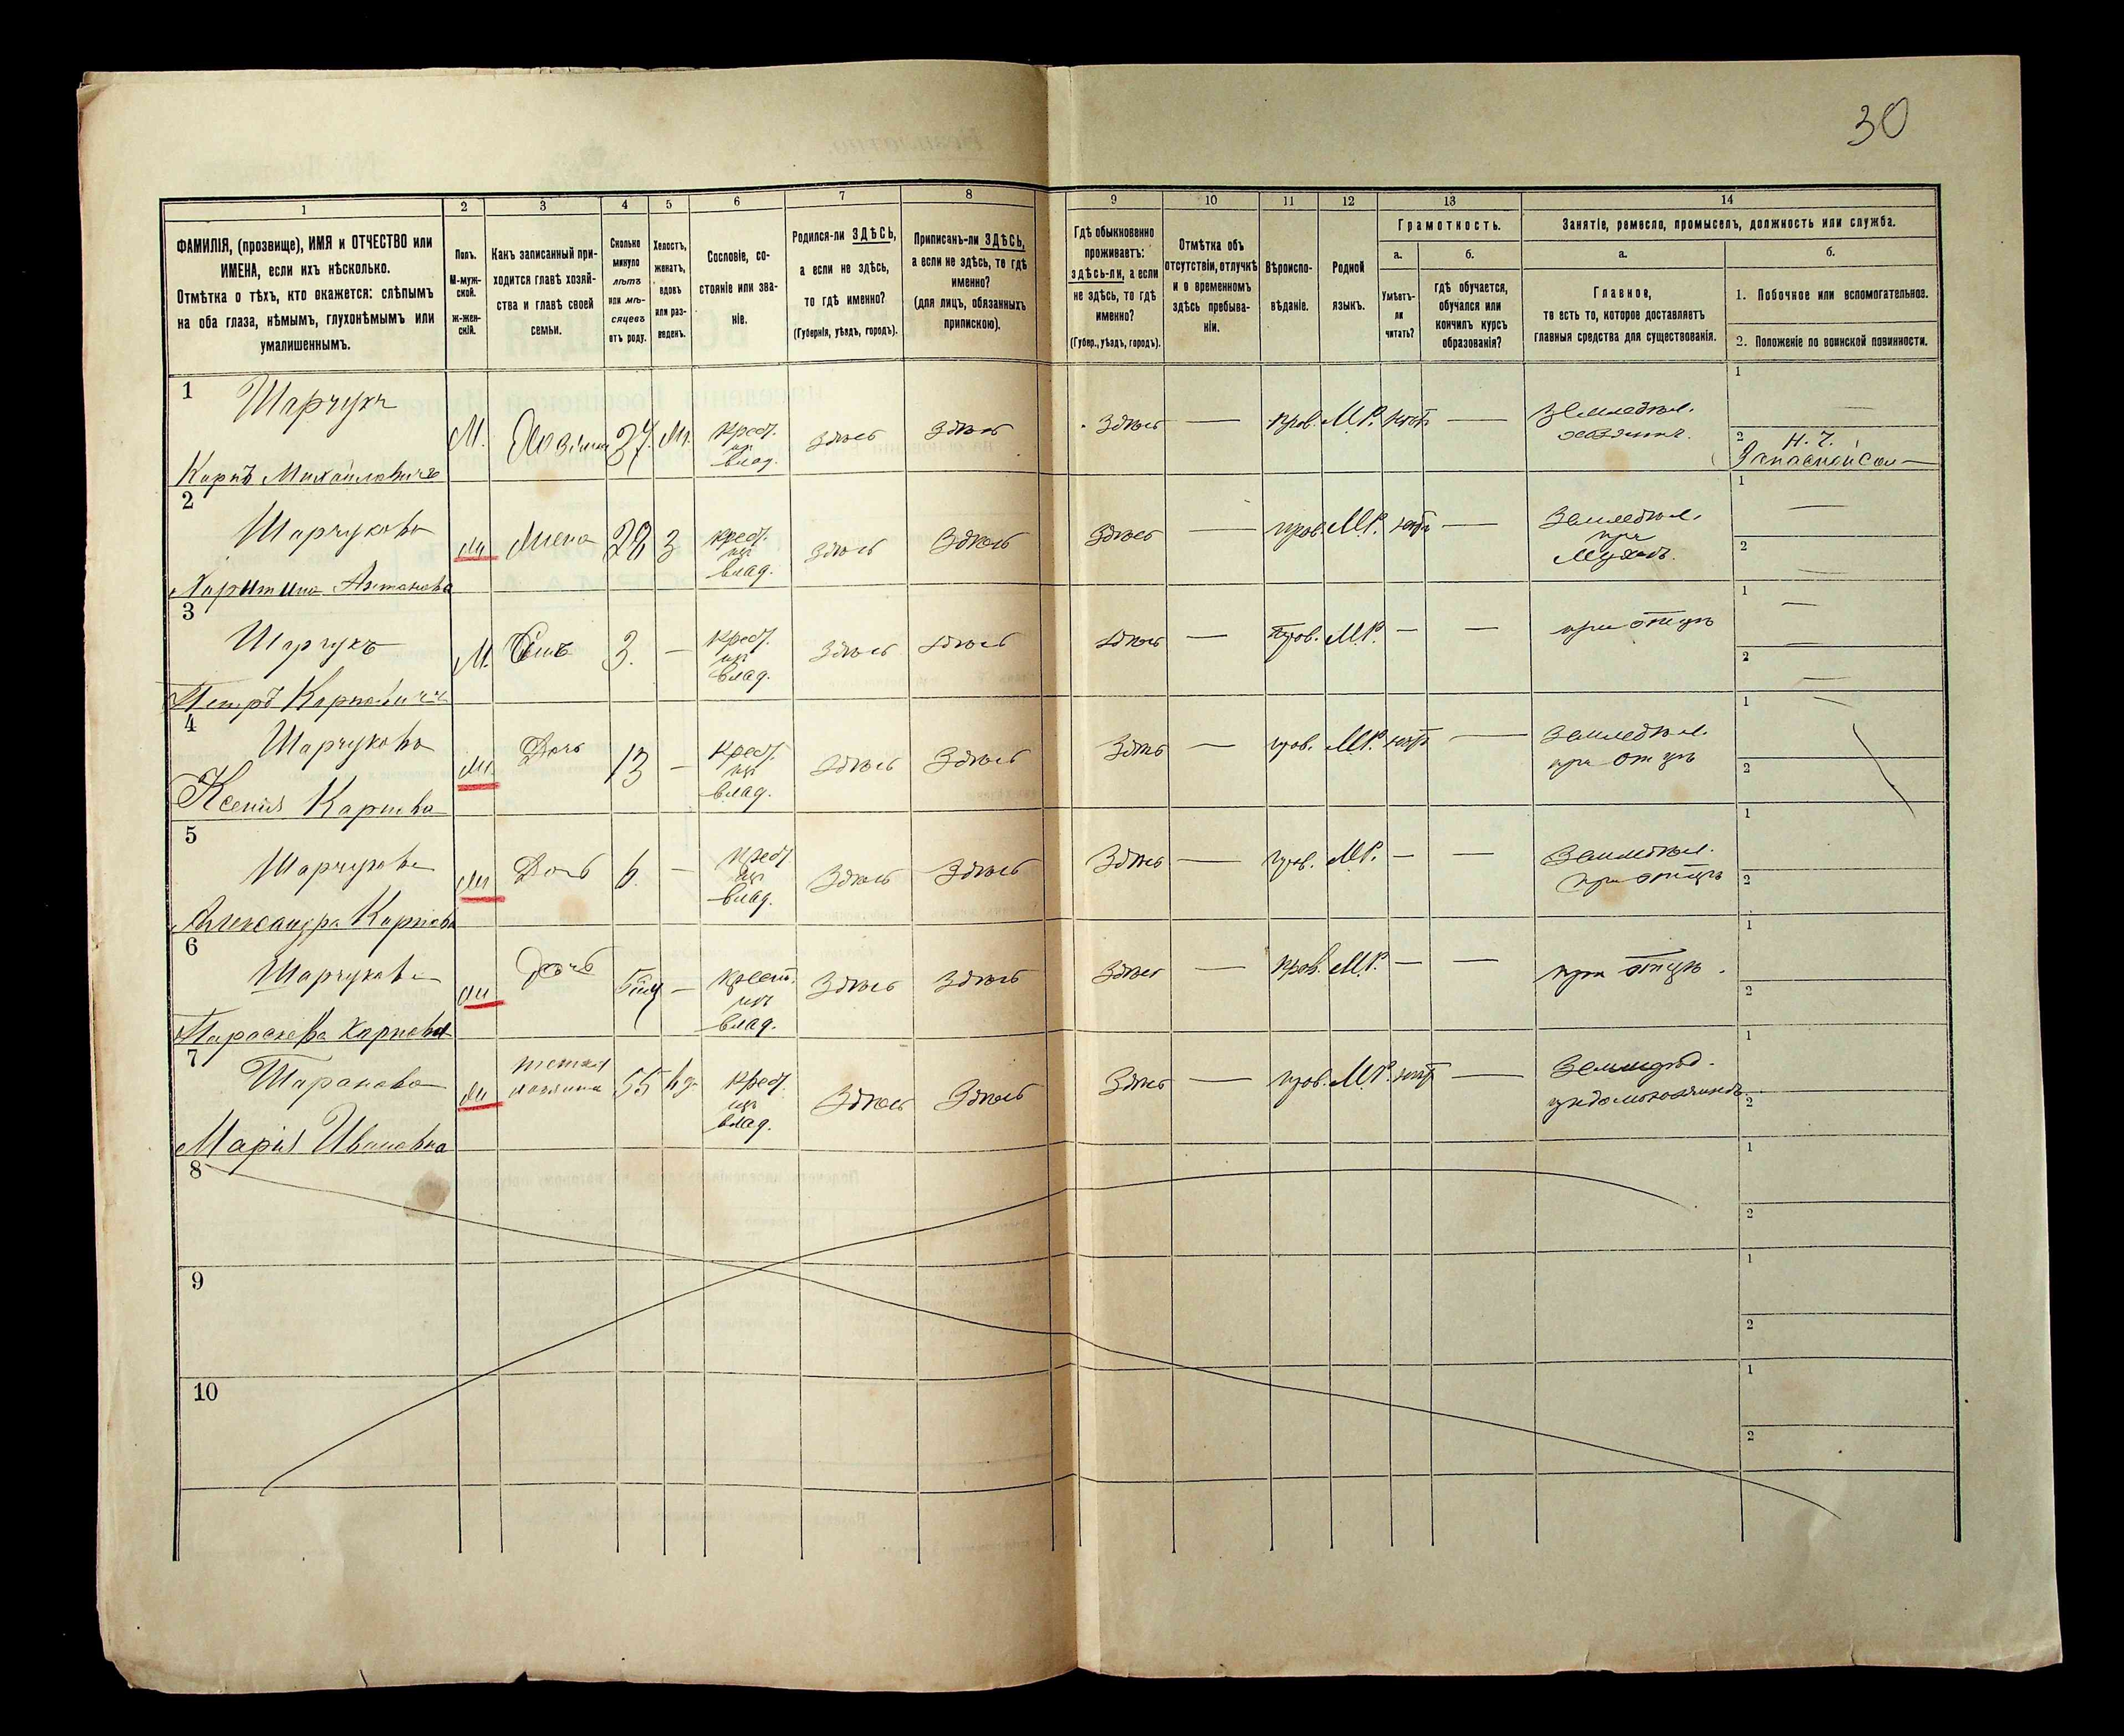 30
1 2 3 4 5 6 7 8 9 10 11 12 13 14
ФАМИЛІЯ, (прозвище), ИМЯ и ОТЧЕСТВО или
ИМЕНА, если ихъ нѣсколько.
Отмѣтка о тѣхъ, кто окажется: слѣпымъ
на оба глаза, нѣмымъ, глухонѣмымъ или
умалишеннымъ.
Полъ.
М-муж-
ской.
Ж-жен-
скій.
Какъ записанный при-
ходится главѣ хозяй-
ства и главѣ своей
семьи.
Сколько
минуло
лѣтъ
или мѣ-
сяцевъ
отъ роду.
Холостъ,
женатъ,
вдовъ
или раз-
веденъ.
Сословіе, со-
стояніе или зва-
ніе.
Родился-ли ЗДѢСЬ,
а если не здѣсь,
то гдѣ именно?
(Губернія, уѣздъ, городъ).
Приписанъ-ли ЗДѢСЬ,
а если не здѣсь, то гдѣ
именно?
(для лицъ, обязанныхъ
припискою).
Гдѣ обыкновенно
проживаетъ:
здѣсь-ли, а если
не здѣсь, то гдѣ
именно?
(Губер., уѣздъ, городъ).
Отмѣтка объ
отсутствіи, отлучкѣ
и о временномъ
здѣсь пребыва-
ніи.
Вѣроиспо-
вѣданіе.
Родной
языкъ.
Грамотность.
а.
Умѣетъ-
ли
читать?
б.
гдѣ обучается,
обучался или
кончилъ курсъ
образованія?
Занятіе, ремесло, промыселъ, должность или служба.
а.
Главное,
то есть то, которое доставляетъ
главныя средства для существованія.
б.
1. Побочное или вспомогательное.
2. Положеніе по воинской повинности.
1
Шарчукъ
Карпъ Михайловичъ
М. Хозяинъ 37. Ж. Крест. влад. Здѣсь Здѣсь
Здѣсь — Прав. М.Р. — Земледѣл.
хозяинъ.
1 —
2 Н. Ч.
Запасной
2
Шарчукова
Харитина Антонова
Жена З Крест. влад. Здѣсь Здѣсь
Здѣсь — прав. М.Р. — Земледѣл.
при
Мужѣ.
1 —
2 —
3
Шарчукъ
Петръ Карповичъ
М. Сынъ 3. — Крест. влад. Здѣсь Здѣсь
Здѣсь — Прав. М.Р. — — при отцѣ
1 —
2 —
4
Шарчукова
Ксенія Карпова
Дочь 13 — Крест. влад. Здѣсь Здѣсь
Здѣсь — прав. М.Р. — Земледѣл.
при отцѣ
1 —
2
5
Шарчукова
Александра Карпова
Дочь 6. — Крест. влад. Здѣсь Здѣсь
Здѣсь — прав. М.Р. — — Земледѣл.
при отцѣ
1
2
6
Шарчукова
Параскева Карпова
Дочь — Крест. влад. Здѣсь Здѣсь
Здѣсь — Прав. М.Р. — — при отцѣ.
1
2
7
Марія Ивановна
55 вд. Крест. влад. Здѣсь Здѣсь
Здѣсь — прав. М.Р. —
1
2
8
1
2
9
1
2
10
1
2